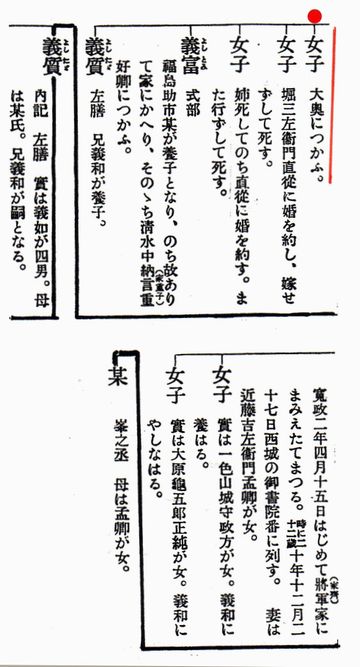 女子 大奥につかふ。
女子 堀三左衞門直從に婚を約し、嫁せ
ずして死す。
女子 姉死してのち直從に婚を約す。ま
た行ずして死す。
義富 式部
福島助市某が養子となり、のち故あり
て家にかへり、そのゝち清水中納言重(家重子)
好卿につかふ。
義質 左膳 兄義和が養子。
義質 內記 左膳 實は義如が四男。母
は某氏。兄義和が嗣となる。
寬政二年四月十五日はじめて將軍家に(家齊)
まみえたてまつる。時に二十二歲 十年十二月二
十七日西城の御書院番に列す。 妻は
近藤吉左衞門孟卿が女。
女子 實は一色山城守政方が女。義和に
養はる。
女子 實は大原龜五郎正純が女。義和に
やしなはる。
某 峯之丞 母は孟卿が女。